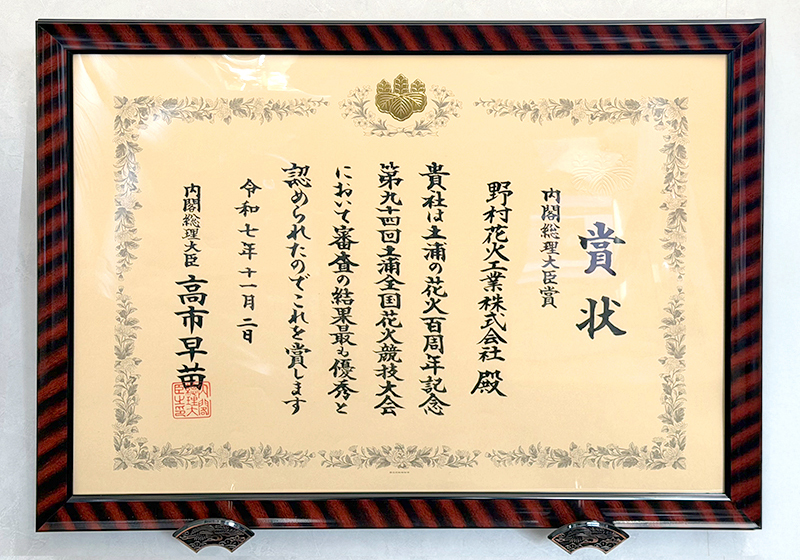 賞状
内閣総理大臣賞
野村花火工業株式会社 殿
貴社は土浦の花火百周年記念
第九十四回土浦全国花火競技大会
において審査の結果最も優秀と
認められたのでこれを賞します
令和七年十一月二日
内閣総理大臣 高市早苗
内閣総理大臣之印